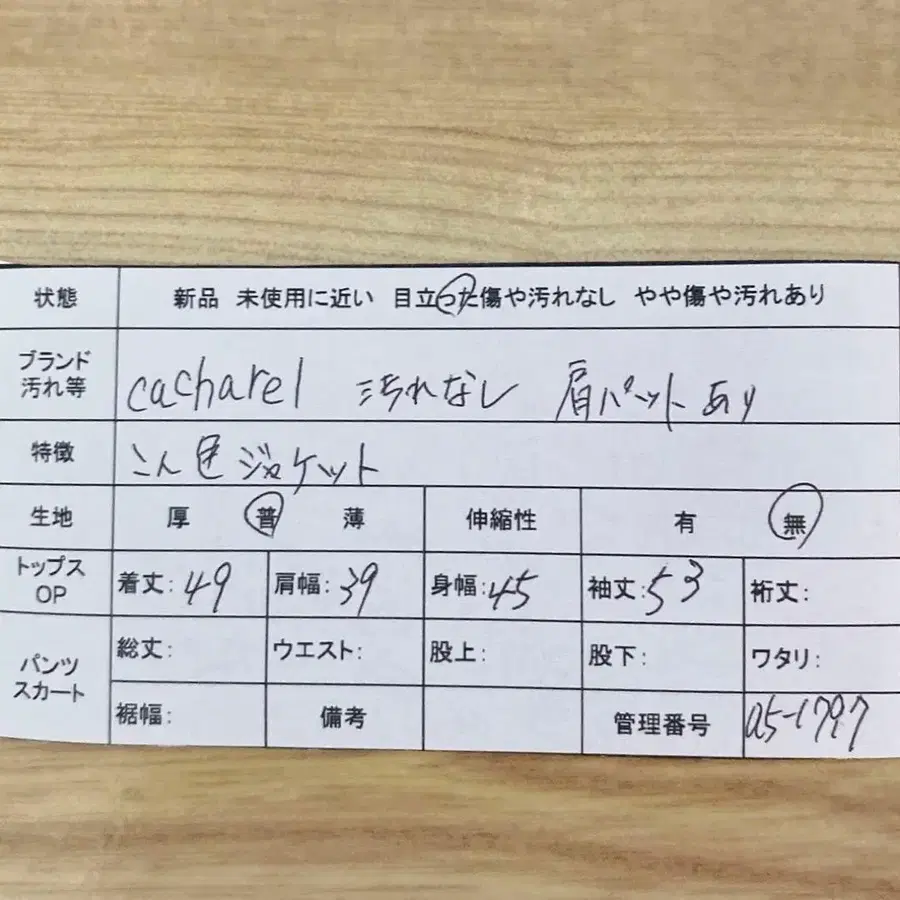 状態 新品 未使用に近い 目立った傷や汚れなし やや傷や汚れあり
ブランド
汚れ等 cacharel 汚れなし 肩パット あり
特徴 こん色ジャケット
生地 厚 普 薄 伸縮性 有 無
トップス
OP 着丈: 49 肩幅: 39 身幅: 45 袖丈: 53 裄丈:
パンツ
スカート 総丈: ウエスト: 股上: 股下: ワタリ:
裾幅: 備考 管理番号 a5-1797